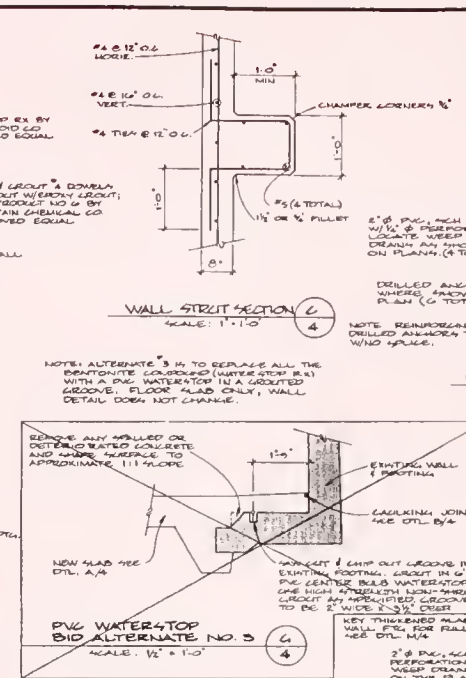 #4 @ 12" O.C.
HORIZ.
#4 @ 16" O.C.
VERT.
#4 TIES @ 12" O.C.
1'-0"
MIN
CHAMFER CORNERS 3/4"
1'-0"
1'-0"
#5 (4 TOTAL)
1 1/2" OR 3/4" FILLET
8"
RX BY
CO
EQUAL
GROUT #4 DOWELS
W/EPOXY GROUT;
PRODUCT NO 6 BY
CHEMICAL CO
EQUAL
2" Ø PVC, SCH
W/ 1/4" Ø PERFOR
LOCATE WEEP
DRAINS AS SHO
ON PLANS. (4 TO
DRILLED ANC
WHERE SHOW
PLAN (6 TOT
WALL STRUT SECTION
SCALE: 1" = 1'-0"
C
4
NOTE REINFORCIN
DRILLED ANCHORS T
W/NO SPLICE.
NOTE: ALTERNATE #3 IS TO REPLACE ALL THE
BENTONITE COMPOUND (WATERSTOP RX)
WITH A PVC WATERSTOP IN A GROUTED
GROOVE. FLOOR SLAB ONLY, WALL
DETAIL DOES NOT CHANGE.
REMOVE ANY SPALLED OR
DETERIORATED CONCRETE
AND SHAPE SURFACE TO
APPROXIMATE 1:1 SLOPE
EXISTING WALL
& FOOTING
CAULKING JOIN
SEE DTL. B/4
NEW SLAB SEE
DTL. A/4
SAWCUT & CHIP OUT GROOVE IN
EXISTING FOOTING. GROUT IN 6"
PVC CENTER BULB WATERSTOP
USE HIGH STRENGTH NON-SHRI
GROUT AS SPECIFIED. GROOVE
TO BE 2" WIDE X 3 1/2" DEEP
PVC WATERSTOP
BID ALTERNATE NO. 3
SCALE: 1/2" = 1'-0"
G
4
KEY THICKENED SLAB
WALL FTG FOR FULL
SEE DTL. M/4
2" Ø PVC, SC
PERFORATION
WEEP DRAIN